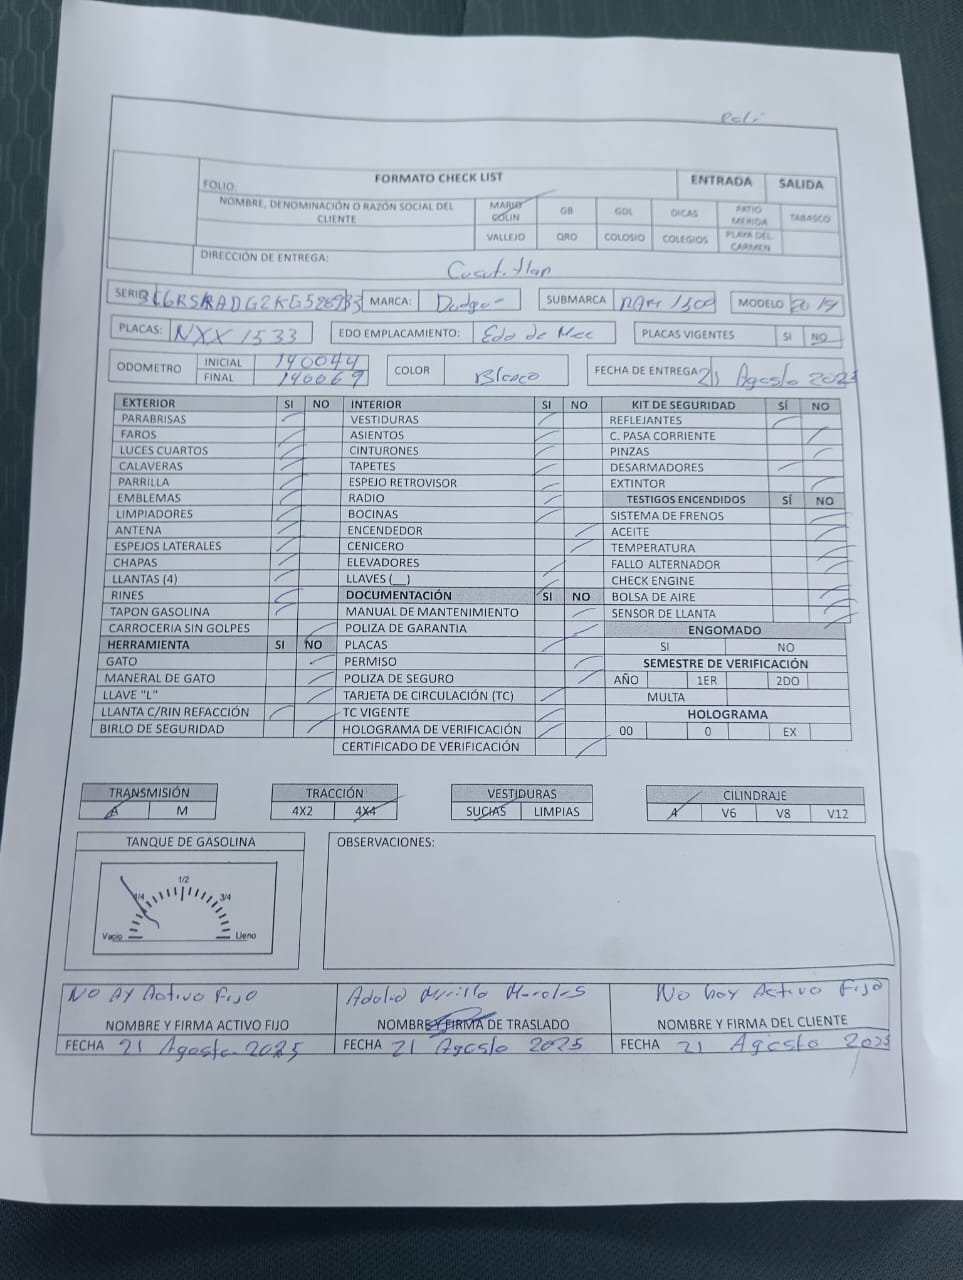 FORMATO CHECK LIST
ENTRADA SALIDA
FOLIO:
NOMBRE, DENOMINACIÓN O RAZÓN SOCIAL DEL CLIENTE
MARIO GOLIN GB GDL DICAS PATIO MERIDA TABASCO
VALLEJO QRO COLOSIO COLEGIOS PLAYA DEL CARMEN
DIRECCIÓN DE ENTREGA:
SERIE MARCA: Dodge SUBMARCA RAM 1500 MODELO 2019
PLACAS: NXX 1533 EDO EMPLACAMIENTO: Edo de Mex PLACAS VIGENTES SI NO
ODOMETRO INICIAL 140044 COLOR Blanco FECHA DE ENTREGA 21 Agosto 2025
FINAL 140069
EXTERIOR SI NO INTERIOR SI NO KIT DE SEGURIDAD SÍ NO
PARABRISAS VESTIDURAS REFLEJANTES
FAROS ASIENTOS C. PASA CORRIENTE
LUCES CUARTOS CINTURONES PINZAS
CALAVERAS TAPETES DESARMADORES
PARRILLA ESPEJO RETROVISOR EXTINTOR
EMBLEMAS RADIO TESTIGOS ENCENDIDOS SÍ NO
LIMPIADORES BOCINAS SISTEMA DE FRENOS
ANTENA ENCENDEDOR ACEITE
ESPEJOS LATERALES CENICERO TEMPERATURA
CHAPAS ELEVADORES FALLO ALTERNADOR
LLANTAS (4) LLAVES (__) CHECK ENGINE
RINES DOCUMENTACIÓN SI NO BOLSA DE AIRE
TAPON GASOLINA MANUAL DE MANTENIMIENTO SENSOR DE LLANTA
CARROCERIA SIN GOLPES POLIZA DE GARANTIA ENGOMADO
HERRAMIENTA SI NO PLACAS SI NO
GATO PERMISO SEMESTRE DE VERIFICACIÓN
MANERAL DE GATO POLIZA DE SEGURO AÑO 1ER 2DO
LLAVE "L" TARJETA DE CIRCULACIÓN (TC) MULTA
LLANTA C/RIN REFACCIÓN TC VIGENTE HOLOGRAMA
BIRLO DE SEGURIDAD HOLOGRAMA DE VERIFICACIÓN 00 0 EX
CERTIFICADO DE VERIFICACIÓN
TRANSMISIÓN TRACCIÓN VESTIDURAS CILINDRAJE
A M 4X2 4X4 SUCIAS LIMPIAS 4 V6 V8 V12
TANQUE DE GASOLINA OBSERVACIONES:
1/2
1/4 3/4
Vacio Lleno
No Ay Activo Fijo No hay Activo Fijo
NOMBRE Y FIRMA ACTIVO FIJO NOMBRE Y FIRMA DE TRASLADO NOMBRE Y FIRMA DEL CLIENTE
FECHA 21 Agosto 2025 FECHA 21 Agosto 2025 FECHA 21 Agosto 2025